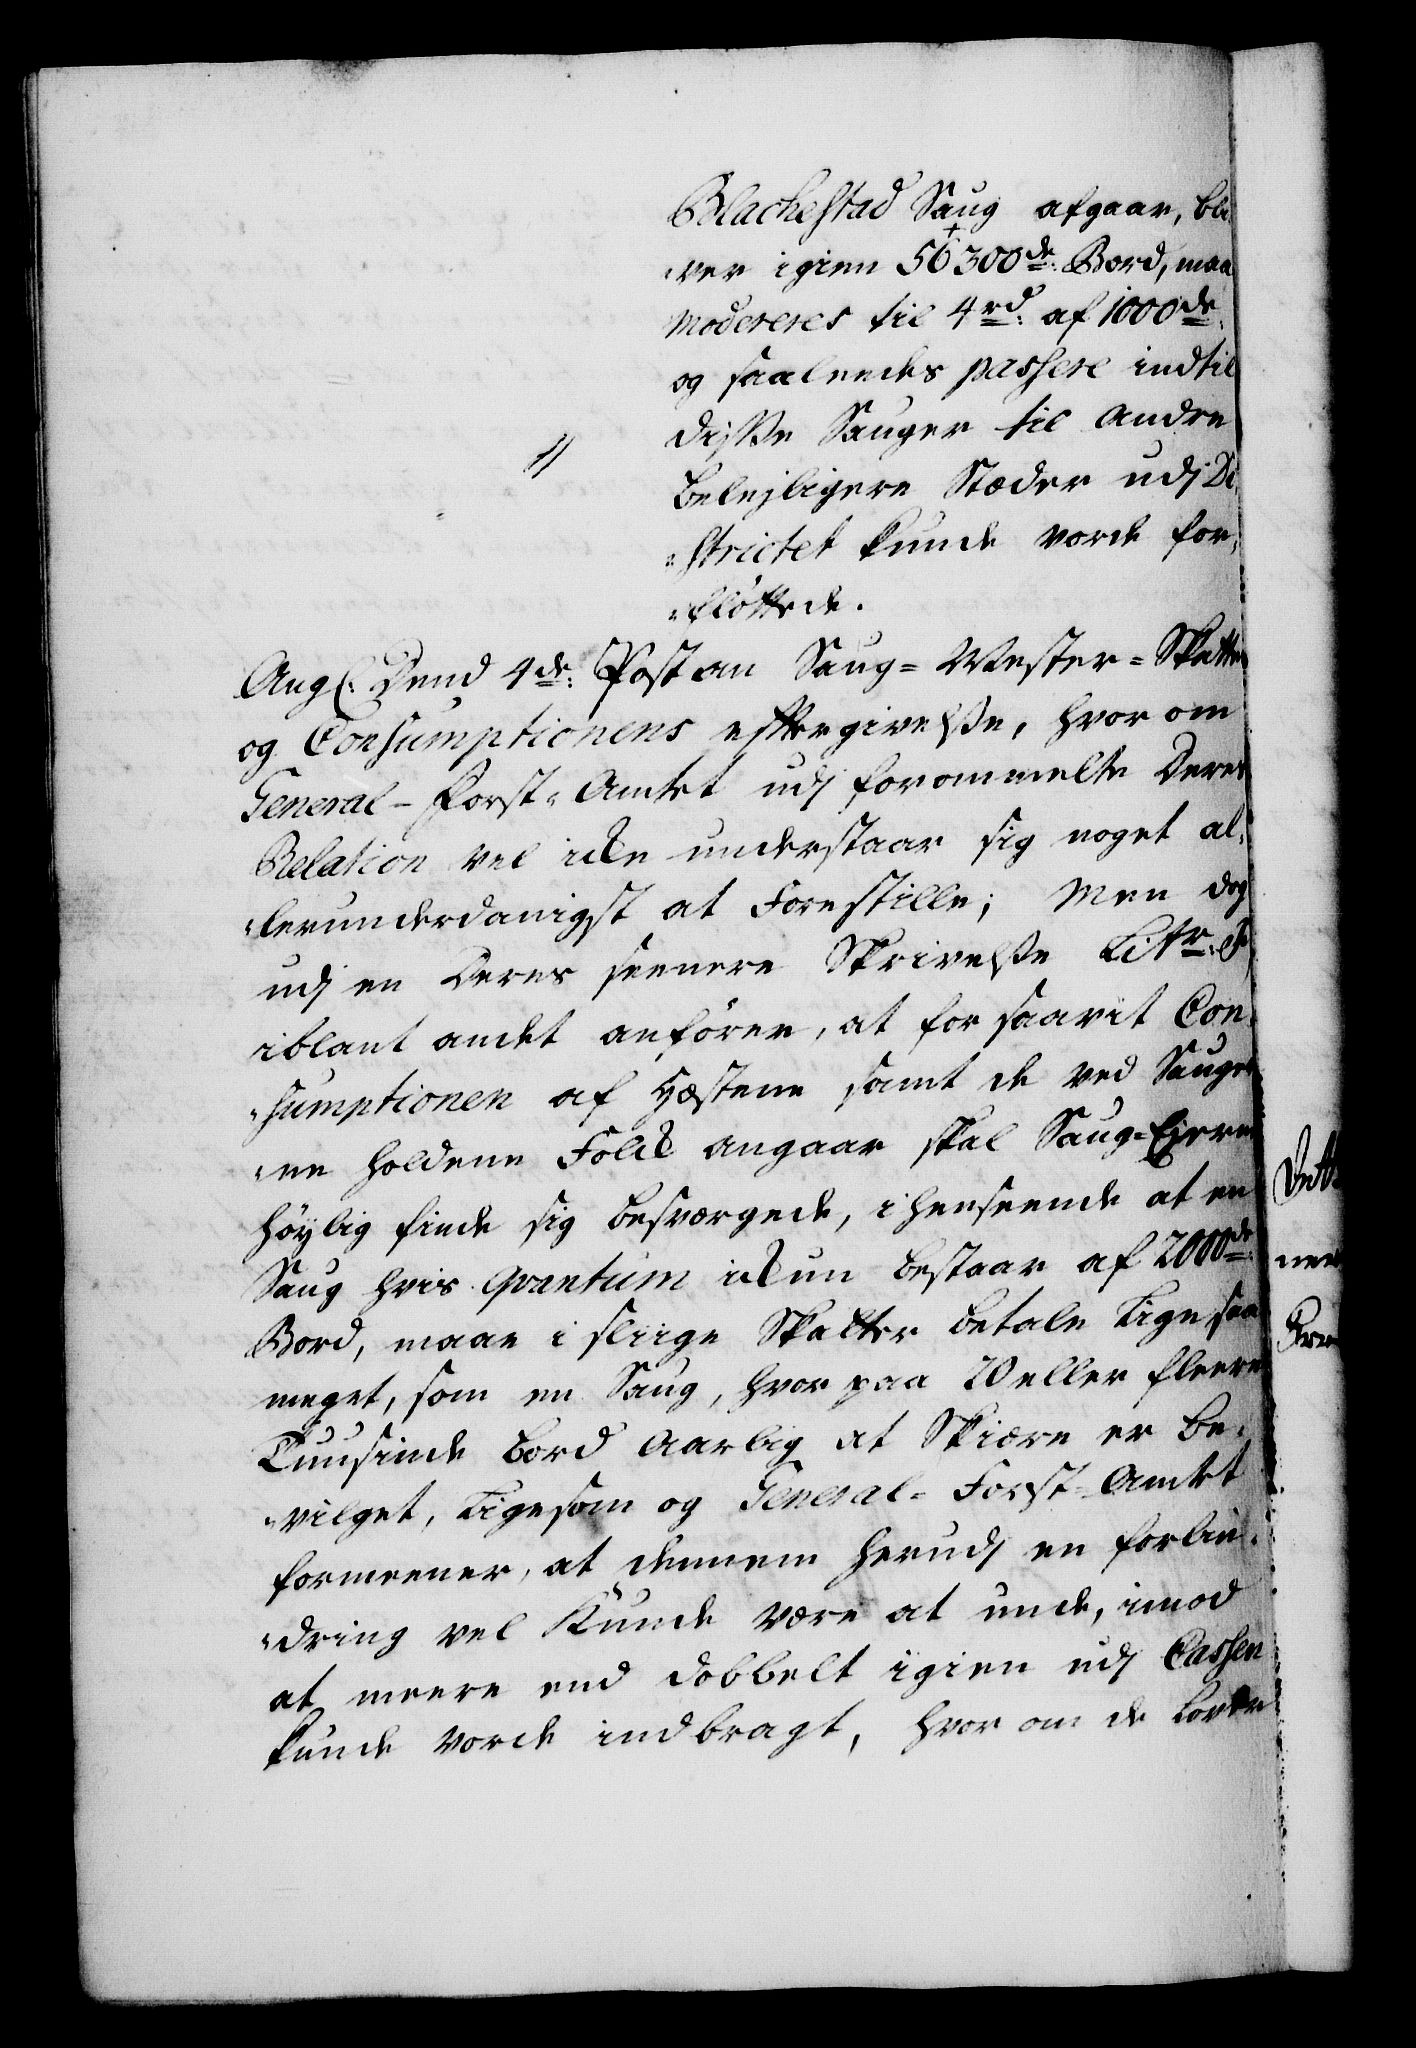 Blachestad Saug afgaar, bli-
"ver igien 56300de Bord, maa
modereres til 4rd: af 1000de:
og saaleedes passere indtil
diſse Sauger til andre
beleyligere Stæder udj Di-
"strictet kunde vorde for-
"fløttede.
Angl: Dend 4de: Post om Saug-Mester-Skatte
og Consumptionens eftergivelſe, hvorom
General-Forst-Amtet udj forommelte Deres
Relation vel icke understaar sig noget al-
"lerunderdanigst at Forestille; Men dog
udj en Deres seenere Skrivelſe Litr: F
iblant andet anfører, at for saavit Con-
"sumptionen af Hæstene samt de ved Sauger
"ne holdene Folck angaar skal Saug-Eierne
høylig finde sig besværgede, i henseende at en
Saug hvis Qvantum ickun bestaar af 2000de
Bord, maae i sliige Skatter betale Lige saa
meget, som en Saug, hvor paa 20 eller fleere
Tuusinde bord Aarlig at Skiære er be-
"vilget, Ligesom og General-Forst-Amtet
formeener, at dennem herudj en forlin-
"dring vel Kunde være at unde, imod
at meere end dobbelt igien udj Cassen
kunde vorde indbragt, hvor om de